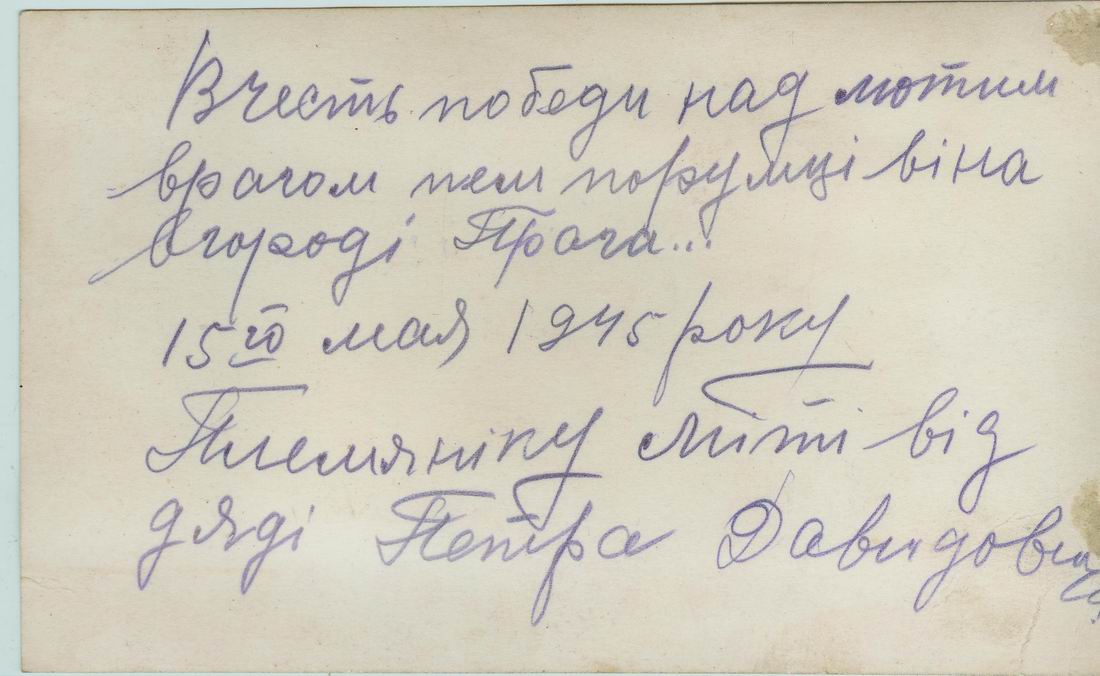 В честь победи над лютим
врагом пєм по румці віна
в городі Прага...
15го мая 1945 року
Племяніку Міті від
дяді Петра Давидовича.